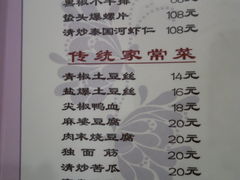 黑椒小牛排 68元
垫头爆螺片 108元
清炒泰国河虾仁 108元
传统家常菜
青椒土豆丝 14元
盐爆土豆丝 16元
尖椒鸭血 18元
麻婆豆腐 20元
肉末烧豆腐 20元
独面筋 20元
清炒苦瓜 20元